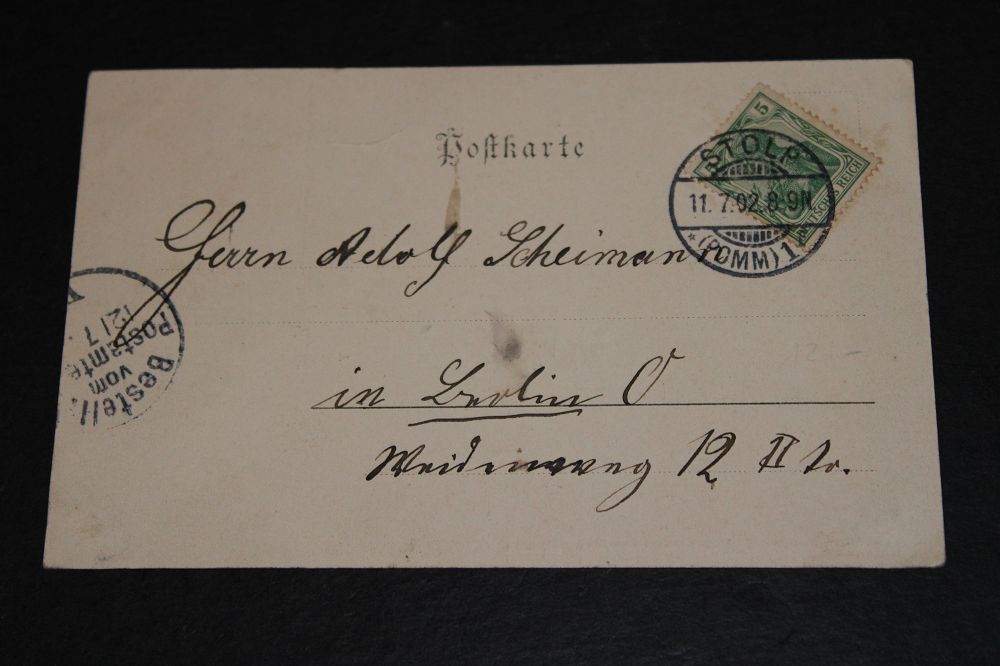 Postkarte
5
DEUTSCHES REICH
STOLP
11.7.02.8-9N.
*(POMM)1
Herrn Adolf Scheimann
Bestellt
vom
Postamte
12/7
in Berlin O
Weidenweg 12 II Tr.